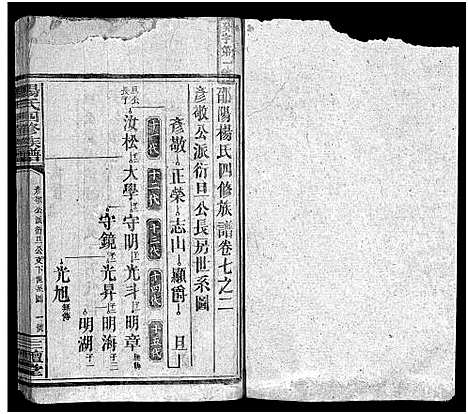 邵陽楊氏四修族譜卷七之二
彥敬公派衍旦公長房世系圖
彥敬 正榮 志山 顯爵 旦
十一代 十二代 十三代 十四代 十五代
旦公長子
汝松 大學 守明 光斗 明章
守鏡 光昇 明海 子二
明湖 子一
光旭
楊氏四修族譜
彥敬公派衍旦公支下世系圖 一號
三鱣堂